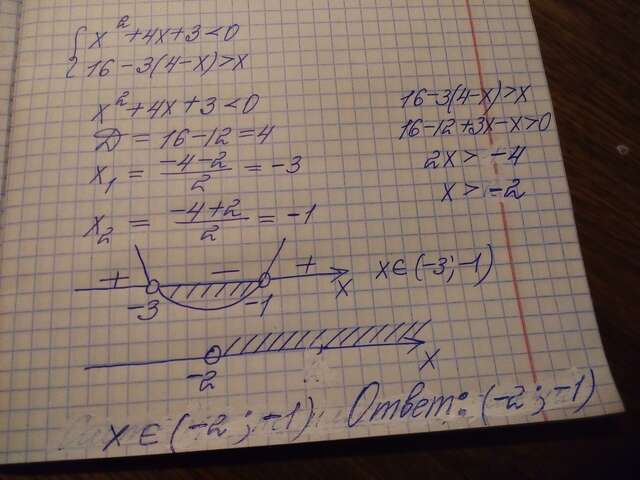 x² + 4x + 3 < 0
16 - 3(4 - x) > x
x² + 4x + 3 < 0
D = 16 - 12 = 4
x₁ = (-4 - 2)/2 = -3
x₂ = (-4 + 2)/2 = -1
16 - 3(4 - x) > x
16 - 12 + 3x - x > 0
2x > -4
x > -2
+ - +
-3 -1 x
x ∈ (-3; -1)
-2 x
x ∈ (-2; -1)
Ответ: (-2; -1)